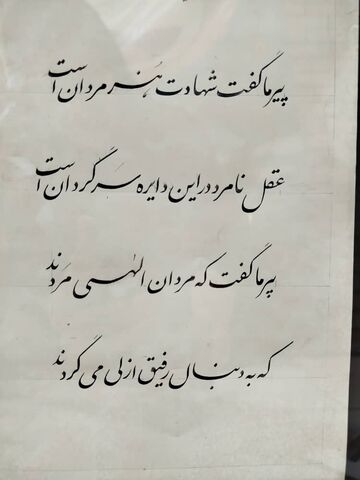 پیر ما گفت شهادت هنر مردان است
عقل نامرد در این دایره سرگردان است
پیر ما گفت که مردان الهی مَردند
که به دنبال رفیق ازلی می گردند